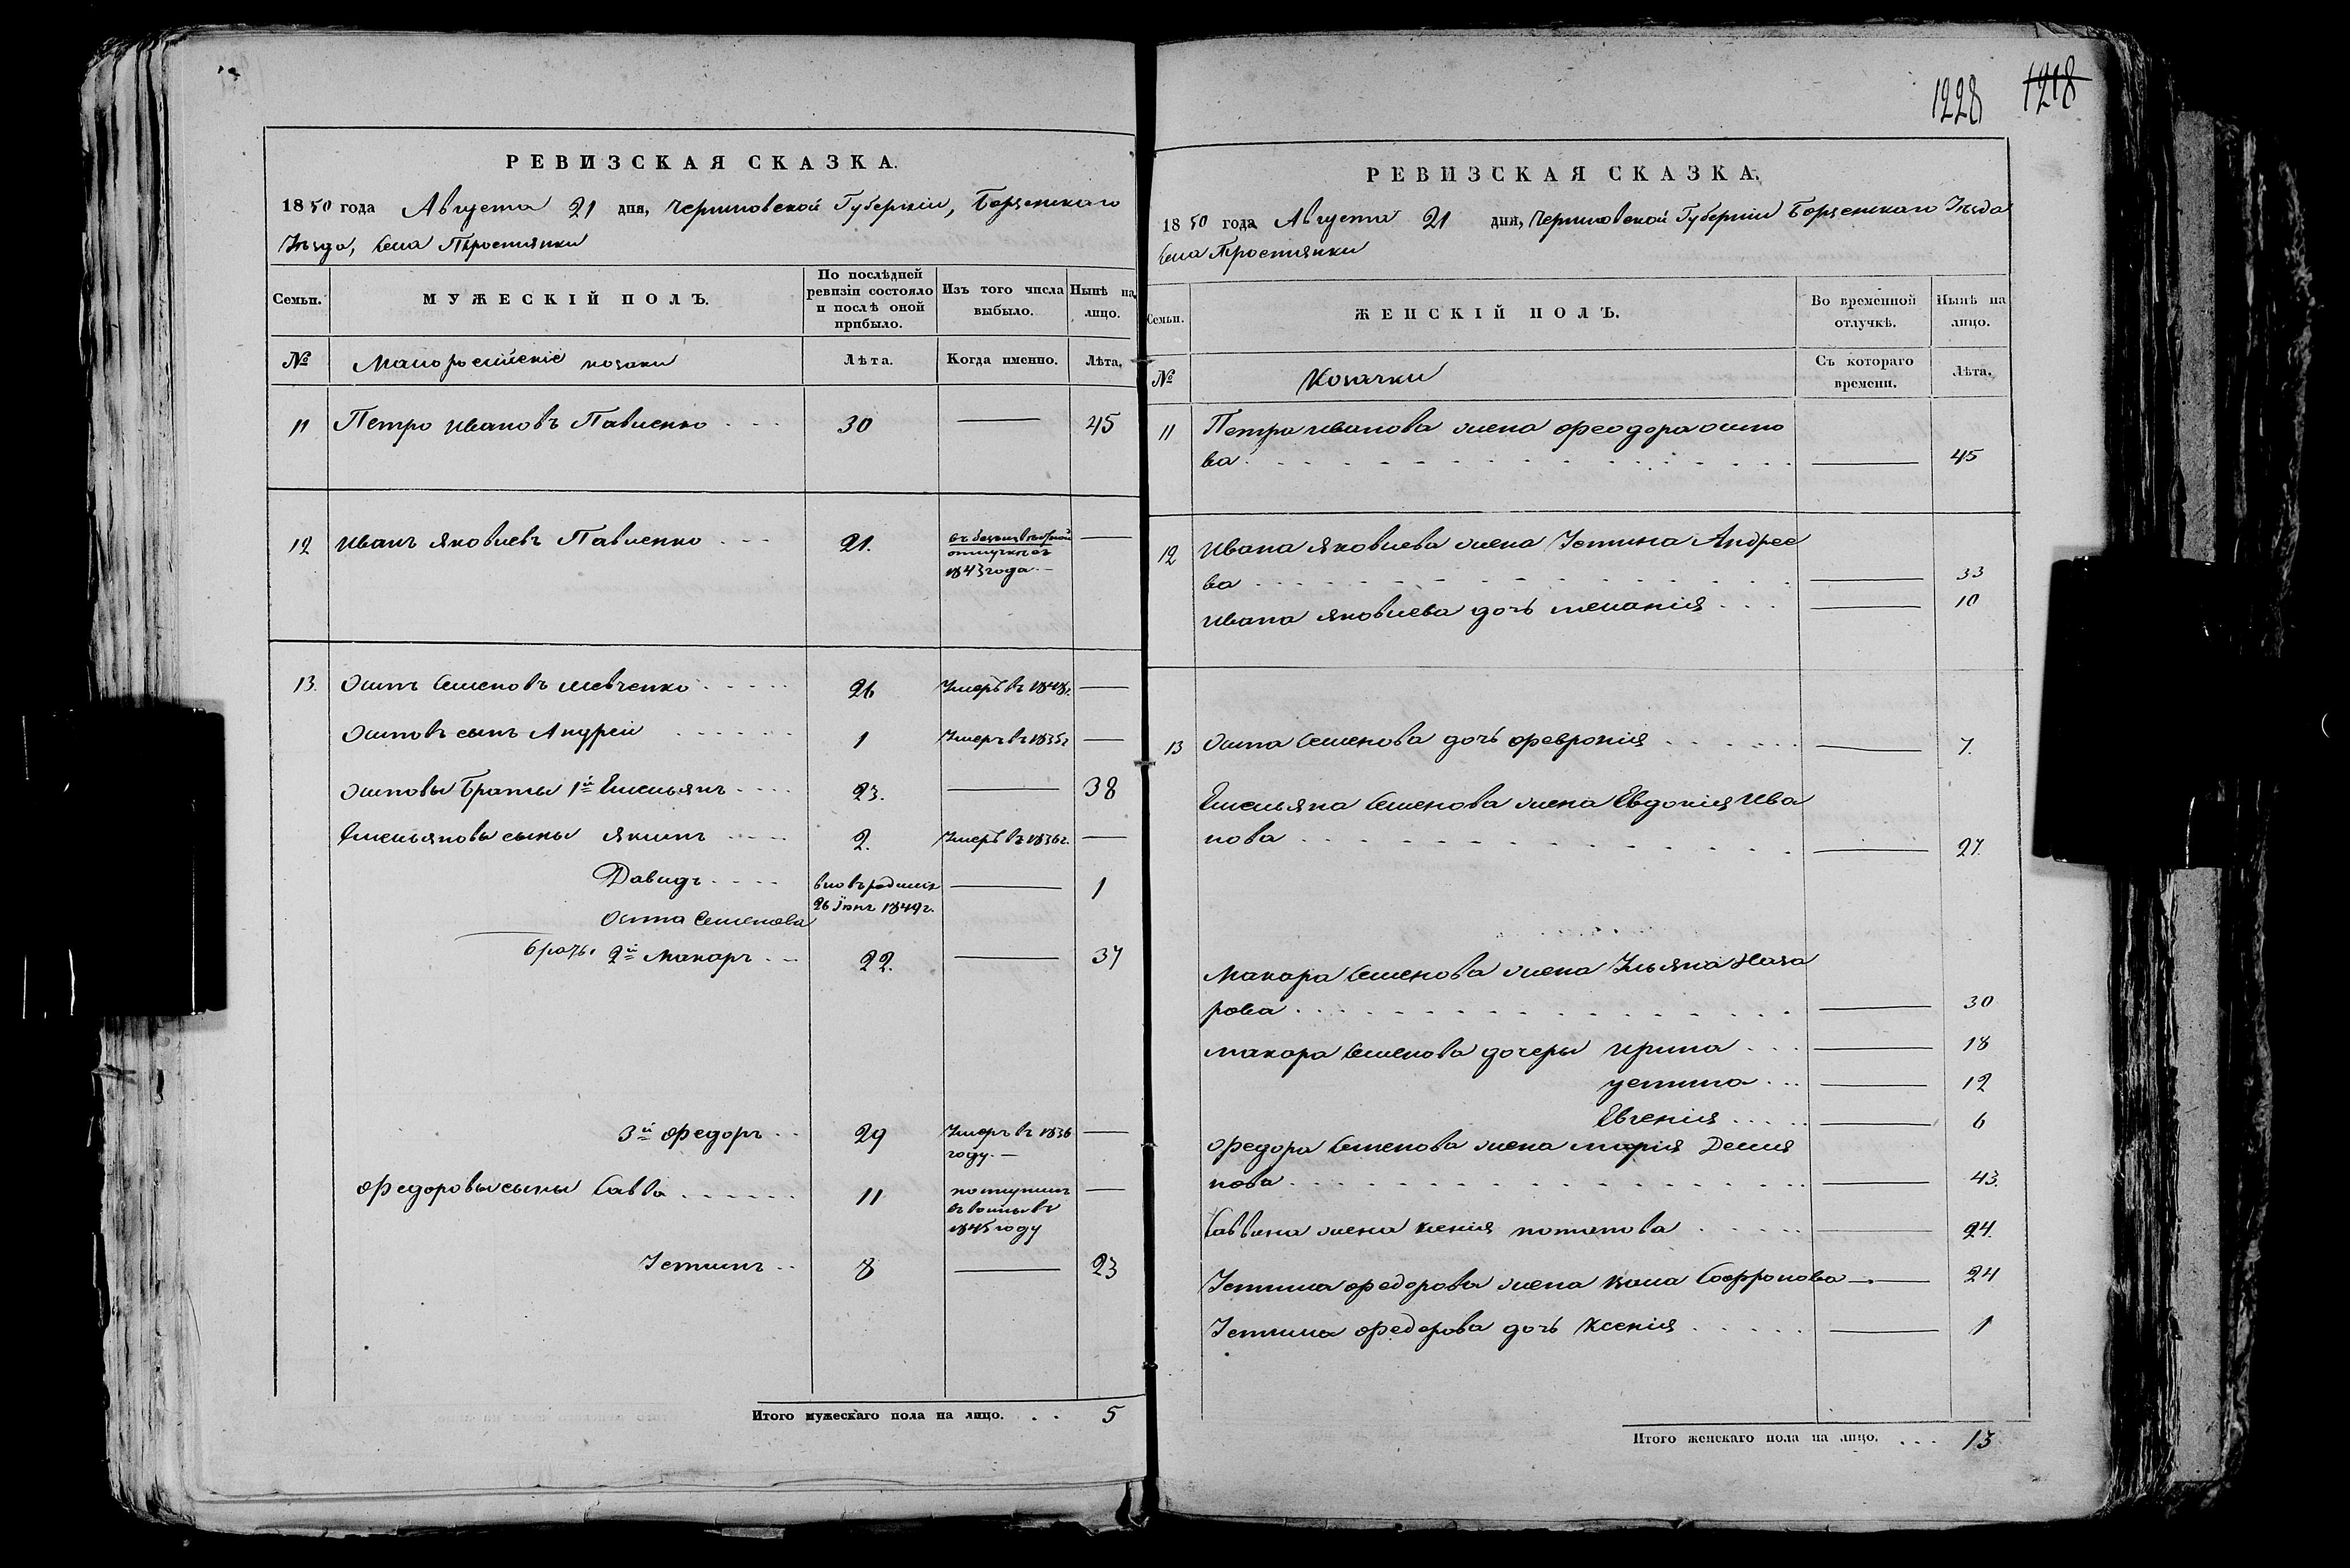 РЕВИЗСКАЯ СКАЗКА.
1850 года Августа 21 дня, Черниговской Губернiи, Борзенскаго
Уѣзда, Села Тростянки
Семьи.
МУЖЕСКIЙ ПОЛЪ.
По послѣдней
ревизiи состояло
и послѣ оной
прибыло.
Изъ того числа
выбыло.
Нынѣ на
лицо.
№
Малороссiйскiе козаки
Лѣта.
Когда именно.
Лѣта.
11 Петро Ивановъ Павленко 30 — 45
12 Иванъ Яковлевъ Павленко 21. —
отлучке съ
1843 года. —
13. Осипъ Семеновъ Шевченко 26 Умеръ въ 1848г. —
Осиповъ сынъ Андрей 1 Умеръ въ 1835г —
Осиповы Браты 1й Емельянъ 23. — 38
Емельяновы сыны Якимъ 2. Умеръ въ 1836г. —
Давидъ вновь 1
26 1849г.
Осипа Семенова
братъ 2й Макаръ 22. — 37
3й Федоръ 29 Умеръ въ 1836 —
году. —
Федоровы сыны Савва 11 поступилъ —
1845 году
Устимъ 8 — 23
Итого мужескаго пола на лицо. . . 5
1228 1218
РЕВИЗСКАЯ СКАЗКА.
1850 года Августа 21 дня, Черниговской Губернiи Борзенскаго Уѣзда
Села Тростянки
Семьи.
ЖЕНСКIЙ ПОЛЪ.
Во временной
отлучкѣ.
Нынѣ на
лицо.
№
Козачки
Съ котораго
времени.
Лѣта.
11 Петра Иванова жена Феодора Осипо
ва — 45
12 Ивана Яковлева жена Устина Андрее
ва — 33
Ивана Яковлева дочь Меланiя — 10
13 Осипа Семенова дочь Февронiя — 7.
Емельяна Семенова жена Евдокiя Ива
нова — 27.
Макара Семенова жена Ульяна Наза
рова — 30
Макара Семенова дочеры Ирина — 18
Устина — 12
Евгенiя — 6
Федора Семенова жена Марiя Демья
нова — 43.
Саввина жена Ксенiя Потапова — 24.
Устима Федорова жена Софронова — 24
Устима Федорова дочь Ксенiя — 1
Итого женскаго пола на лицо. . . . 13